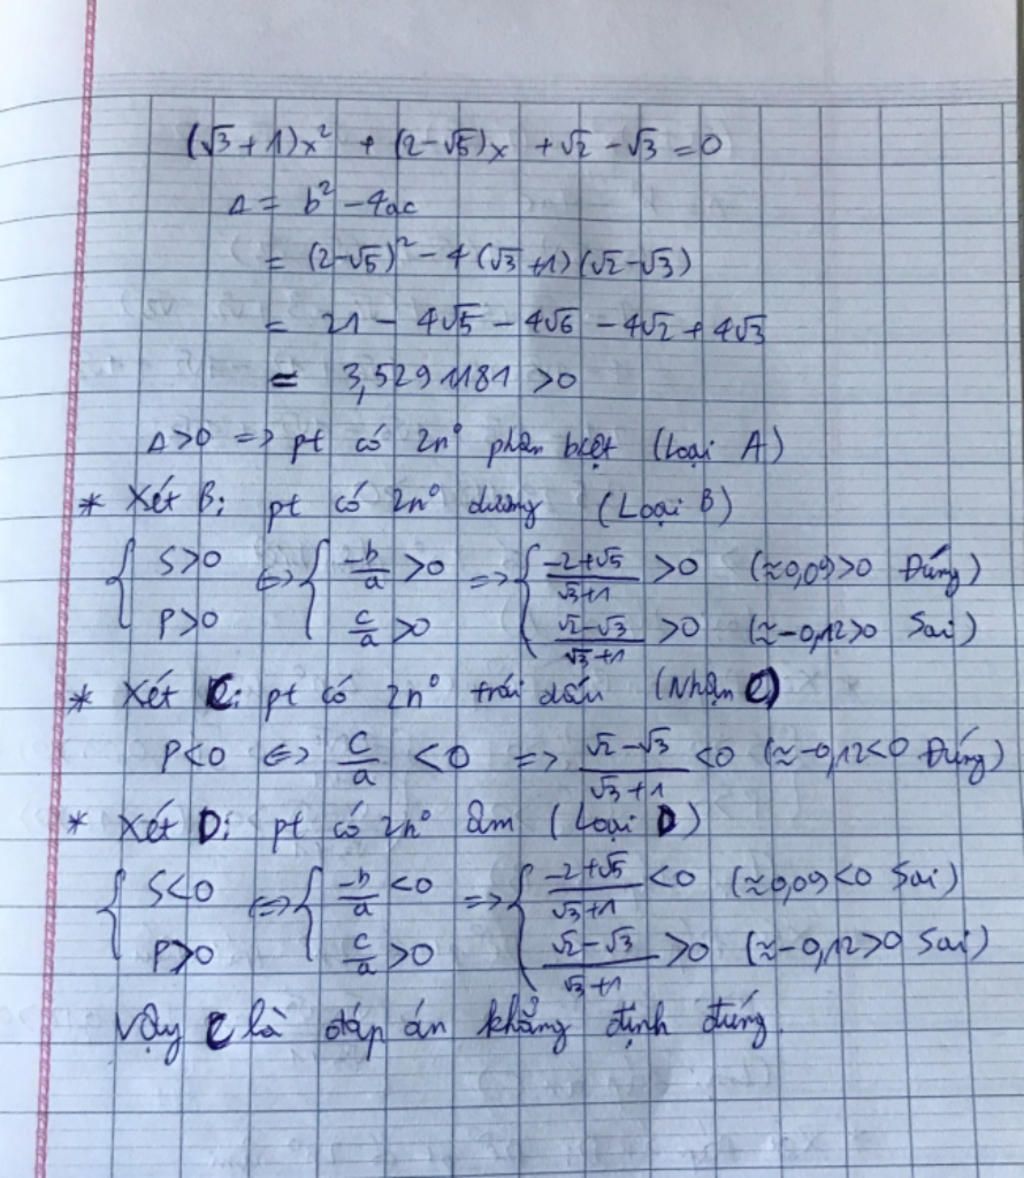 (√3 + 1)x² + (2-√5)x + √2 - √3 = 0
Δ = b² - 4ac
= (2-√5)² - 4(√3 + 1)(√2-√3)
= 21 - 4√5 - 4√6 - 4√2 + 4√3
= 3,52911181 > 0
Δ>0 => pt có 2n⁰ phân biệt (Loại A)
* Xét B: pt có 2n⁰ dương (Loại B)
{ S>0 <=> { -b/a > 0 => { (-2+√5)/(√3+1) > 0 (≈0,09>0 Đúng)
P>0 c/a > 0 (√2-√3)/(√3+1) > 0 (≈-0,12>0 Sai)
* Xét C: pt có 2n⁰ trái dấu (Nhận C)
P<0 <=> c/a < 0 => (√2-√3)/(√3+1) < 0 (≈-0,12<0 Đúng)
* Xét D: pt có 2n⁰ âm (Loại D)
{ S<0 <=> { -b/a < 0 => { (-2+√5)/(√3+1) < 0 (≈0,09<0 Sai)
P>0 c/a > 0 (√2-√3)/(√3+1) > 0 (≈-0,12>0 Sai)
Vậy C là đáp án khẳng định đúng.